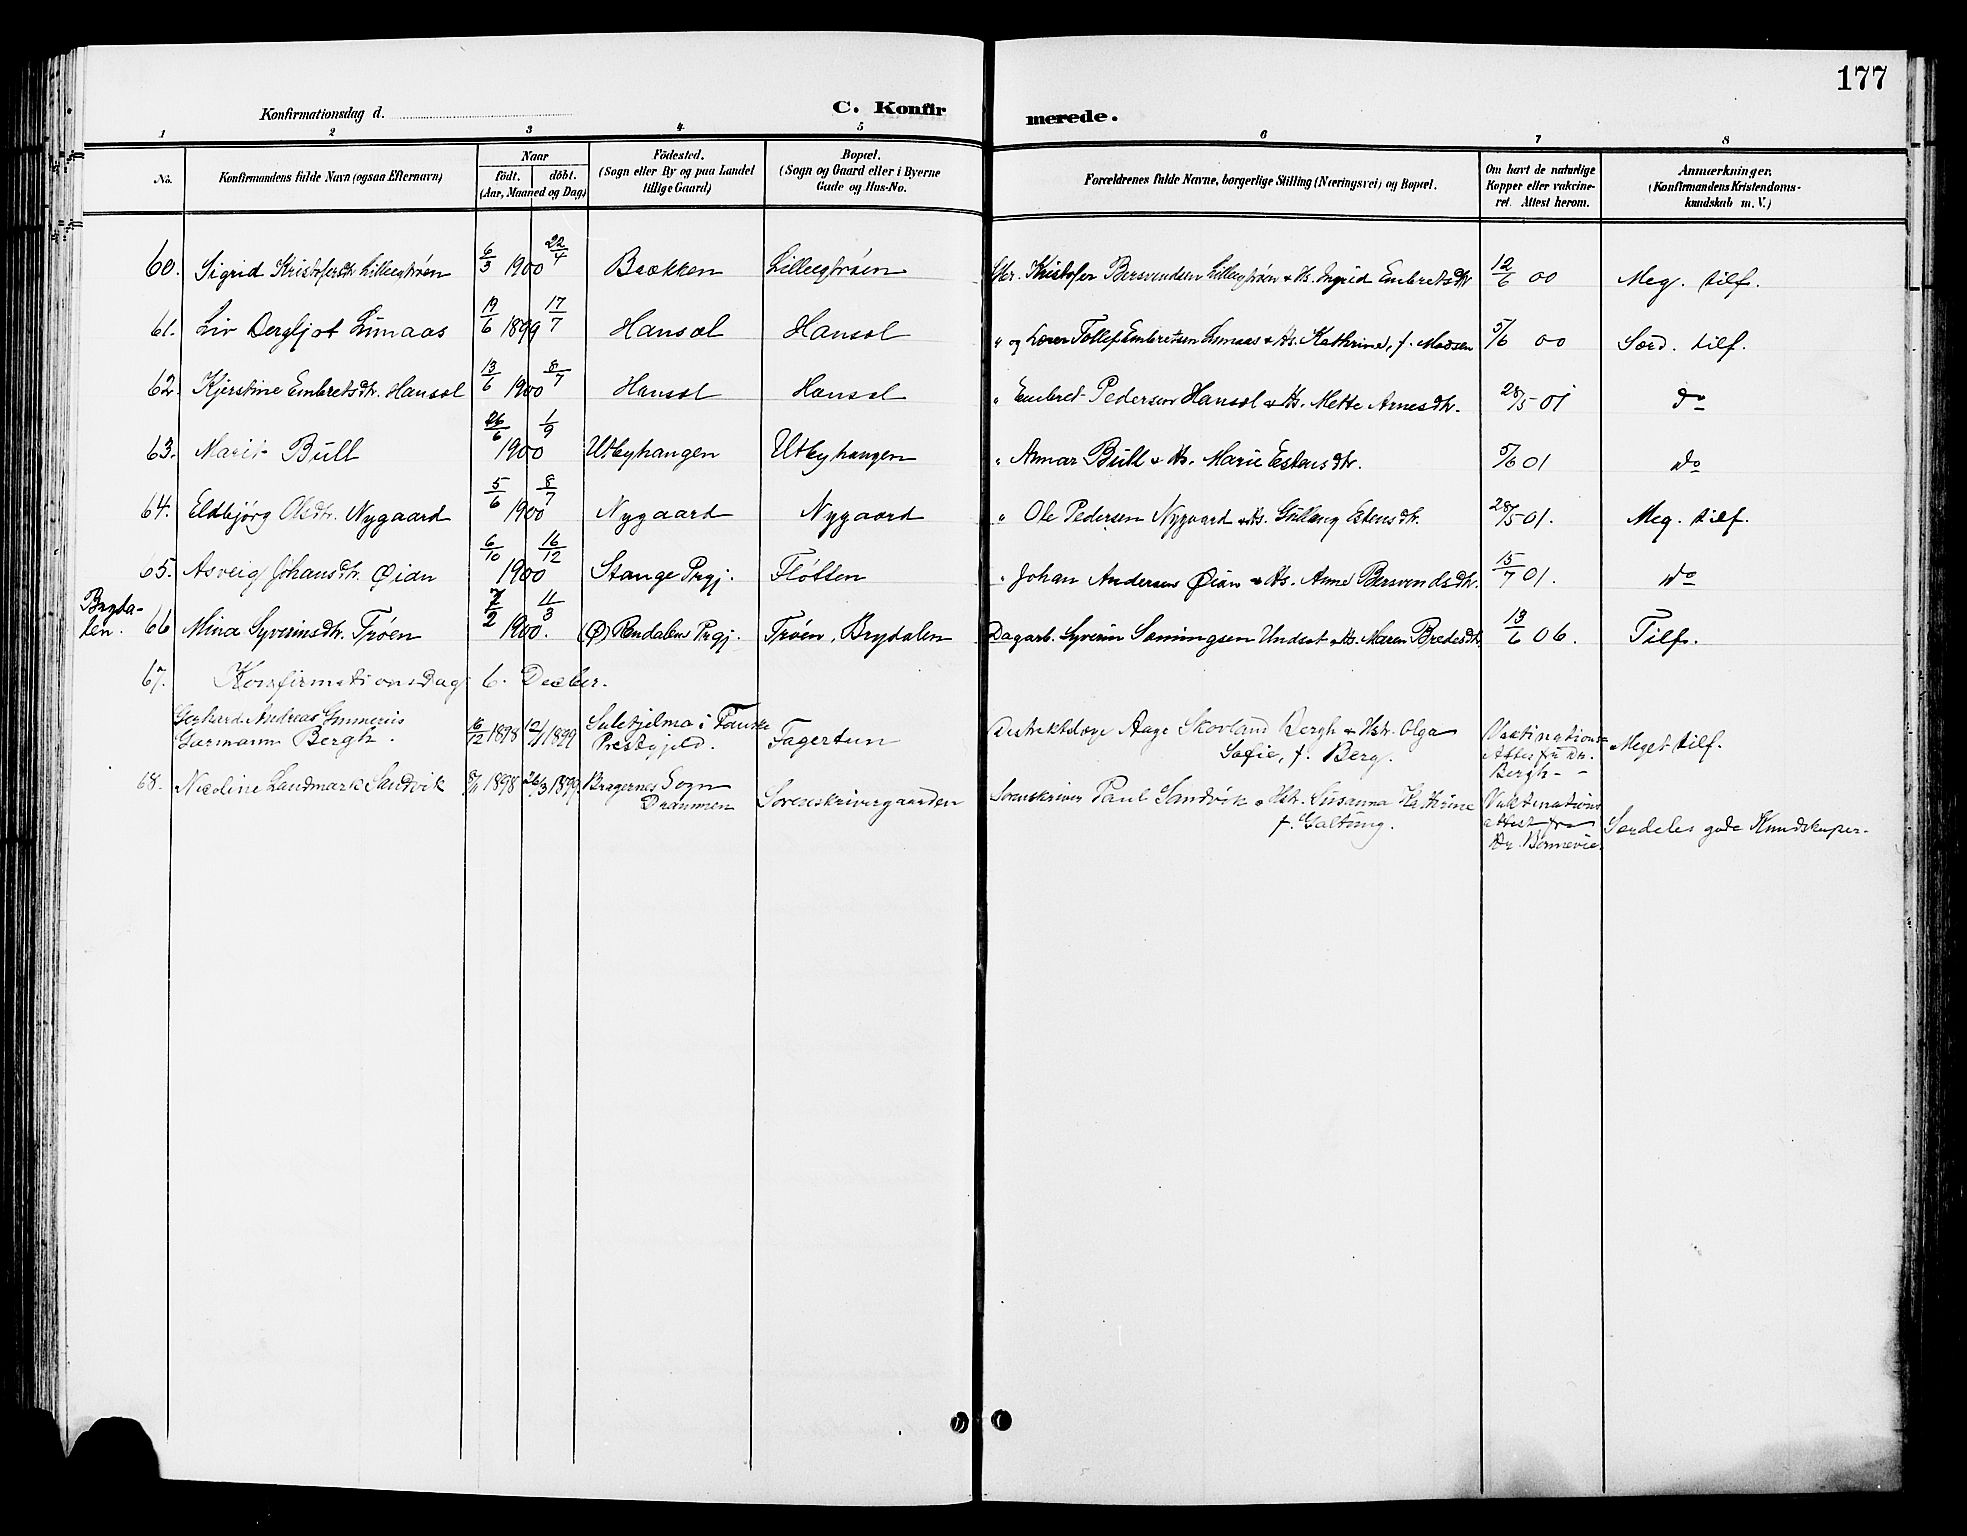 177
Konfirmationsdag d.
C. Konfir
merede.
1 2 3 4 5 6 7 8
No.
Konfirmandens fulde Navn (ogsaa Efternavn)
Naar
födt. döbt.
(Aar, Maaned og Dag)
Födested.
(Sogn eller By og paa Landet
tillige Gaard)
Bopæl.
(Sogn og Gaard eller i Byerne
Gade og Hus-No.
Forældrenes fulde Navne, borgerlige Stilling (Næringsvei) og Bopæl.
Om havt de naturlige
Kopper eller vakcine-
ret. Attest herom.
Anmærkninger.
(Konfirmandens Kristendoms-
kundskab m. V.)
60. Sigrid Kristofersdtr. Lilleegtröen 6/3 1900 22/4 Bækken Lilleegtröen Gbr. Kristofer Bersvendsen Lilleegtröen & Hs. Ingrid Embretsdtr. 12/6 00 Meg. tilf.
61. Liv Dergljot Limaas 19/6 1899 17/7 Hansæl Hansæl " og Lærer Tollef Embretsen Limaas & Hs. Kathrine, f. Madsen 5/6 00 Særd. tilf.
62. Kjerstine Embretsdtr. Hansæl 13/6 1900 8/7 Hansæl Hansæl " Embret Pedersen Hansæl & Hs. Mette Arnesdtr. 28/5 01 do
63. Marit Bull 26/6 1900 1/9 Utbyhaugen Utbyhaugen " Annar Bull & Hs. Marie Estensdtr. 5/6 01 do
64. Eldbjörg Olsdtr. Nygaard 5/6 1900 8/7 Nygaard Nygaard " Ole Pedersen Nygaard & Hs. Gullaug Estensdtr. 28/5 01. Meg. tilf.
65. Asveig Johansdtr. Øian 6/10 1900 16/12 Stange Prgj. Flötten " Johan Andersen Øian & Hs. Anne Bersvendsdtr. 15/7 01. do
Bryda-
len. 66 Mina Syverinsdtr. Tröen 7/2 1900. 11/3 (Ø) Rendalens Prgj. Tröen, Brydalen Dagarb. Syverin Sæmingsen Undset & Hs. Maren Bredesdtr. 13/6 06. Tilf.
67. Konfirmationsdag 6. Decber.
Gerhard Andreas Emmerius
Garmann Bergh. 16/12 1898 12/1 1899 Sulitjelma i Fauske
Prestegjeld. Fagertun Distriktslæge Aage Skovland Bergh & Hstr. Olga
Sofie, f. Berg. Vaccinations-
Attest fra Dr.
Bergh - - Meget tilf.
68. Nicoline Landmark Sandvik 1898 26/3 1899 Bragernes Sogn
Drammen Sorenskrivergaarden Sorenskriver Paul Sandvik & Hstr. Susanna Kathrine
f. Galtung. Vaktinations
attest fra
Dr. Bonnevie. Særdeles gode Kundskaper.